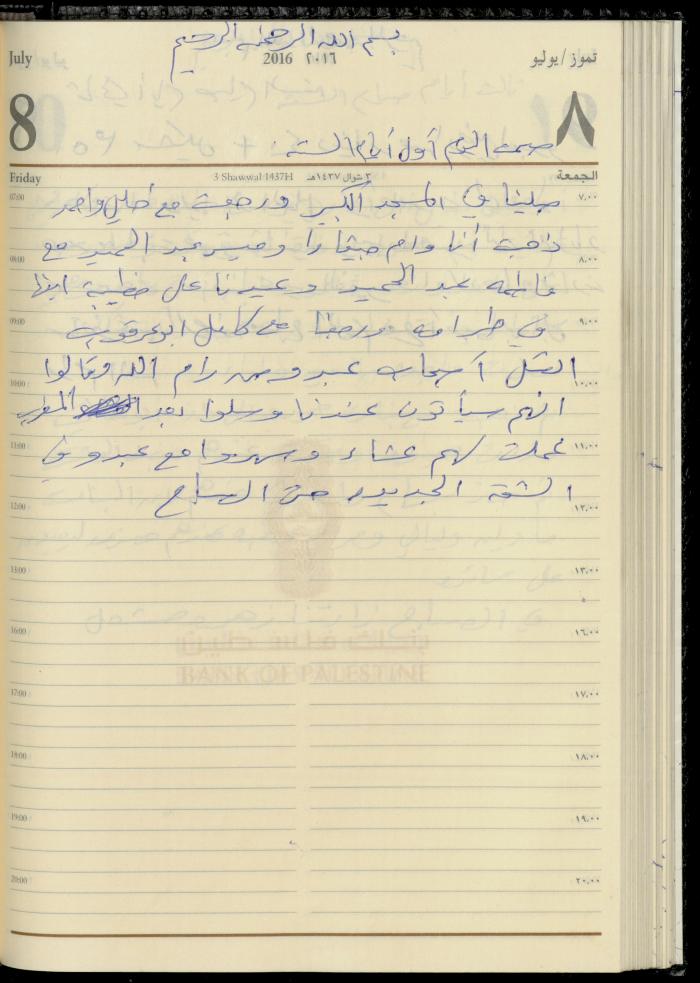 بسم الله الرحمن الرحيم
July 2016 ٢٠١٦ تموز / يوليو
8 ٨
صمت اليوم أول أيام الستة
Friday 3 Shawwal 1437H ٣ شوال ١٤٣٧هـ الجمعة
07:00 ٧.٠٠
صلينا في المسجد الكبير ورجعت مع خليل واحمد
ذهبت أنا وام وميسر عبد الحميد مع
08:00 ٨.٠٠
فاطمه عبد الحميد وعيدنا على خطيبة ابنها
09:00 ٩.٠٠
في طرامه ورجعنا مع كامل ابو عرقوب
اتصل عبد ومن رام الله وقالوا
10:00 ١٠.٠٠
انهم سيأتون عندنا وصلوا بعد المغرب
11:00 ١١.٠٠
عملت لهم عشاء وسهروا مع عبد وفي
الشقة الجديده حتى الصباح
12:00 ١٢.٠٠
13:00 ١٣.٠٠
16:00 ١٦.٠٠
بنك فلسطين
BANK OF PALESTINE
17:00 ١٧.٠٠
18:00 ١٨.٠٠
19:00 ١٩.٠٠
20:00 ٢٠.٠٠